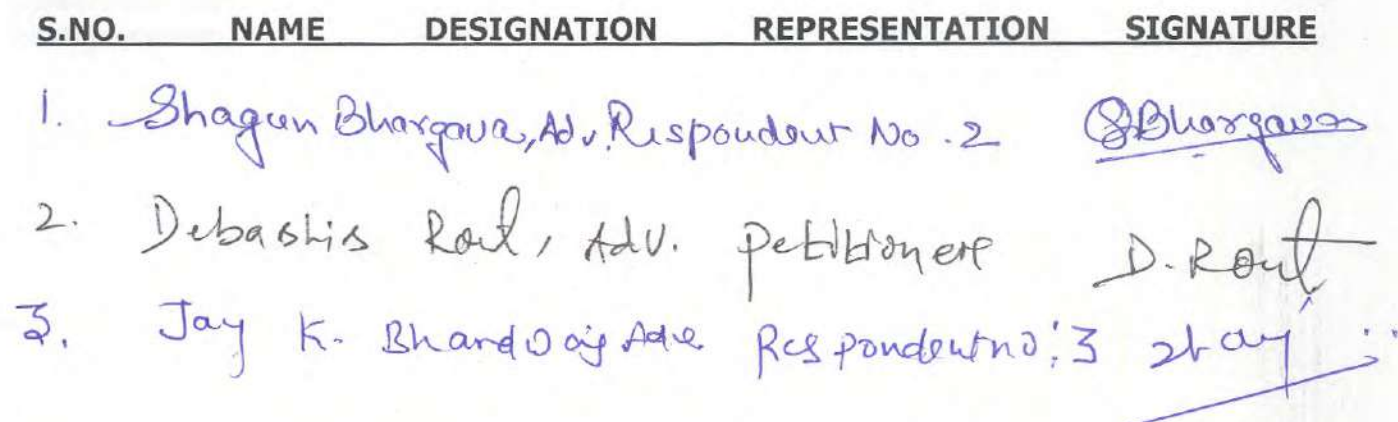 S.NO. NAME DESIGNATION REPRESENTATION SIGNATURE
1. Shagun Bhargava, Adv. Respondent No. 2 SBhargava
2. Debashis Rout, Adv. Petitioner D. Rout
3. Jay K. Bhardwaj Adv. Respondent no. 3